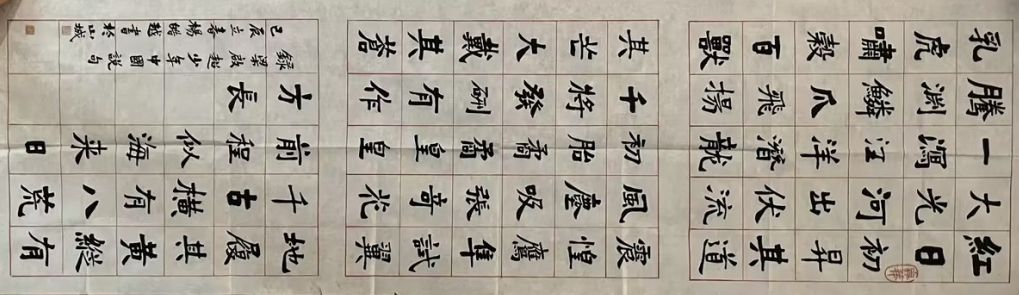 紅日初昇其道
大光河出伏流
一瀉汪洋潛龍
騰淵鱗爪飛揚
乳虎嘯穀百獸
震惶鷹隼試翼
風塵吸張奇花
初胎矞矞皇皇
千將發硎有作
其芒大戴其蒼
地履其黄縱有
千古横有八荒
前程似海来日
方長
録梁啟超少年中國說句
己辰立春楊越書於山城